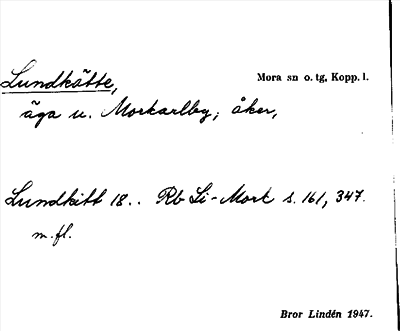 Lundkätte,
Mora sn o. tg, Kopp. l.
äga u. Morkarlby; åker,
Lundkitt 18.. Rb Li-Mork s. 161, 347.
m. fl.
Bror Lindén 1947.